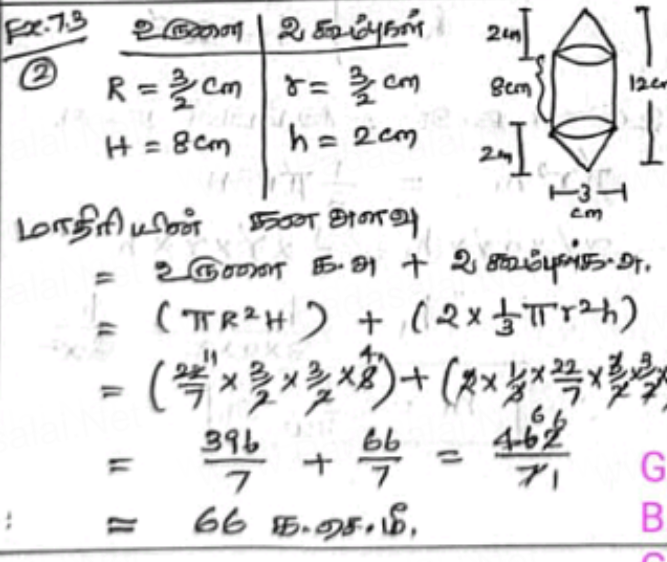 Ex.7.3
②
உருளை | 2 கூம்புகள்
R = 3/2 cm | r = 3/2 cm
H = 8cm | h = 2cm
2cm
8cm
2cm
12cm
3
cm
மாதிரியின் கனஅளவு
= உருளை க.அ + 2 கூம்புகள்க.அ.
= (πR²H) + (2 × 1/3 πr²h)
= (22/7 × 3/2 × 3/2 × 8) + (2 × 1/3 × 22/7 × 3/2 × 3/2 ×
= 396/7 + 66/7 = 462/7
= 66 க.செ.மீ.
G
B